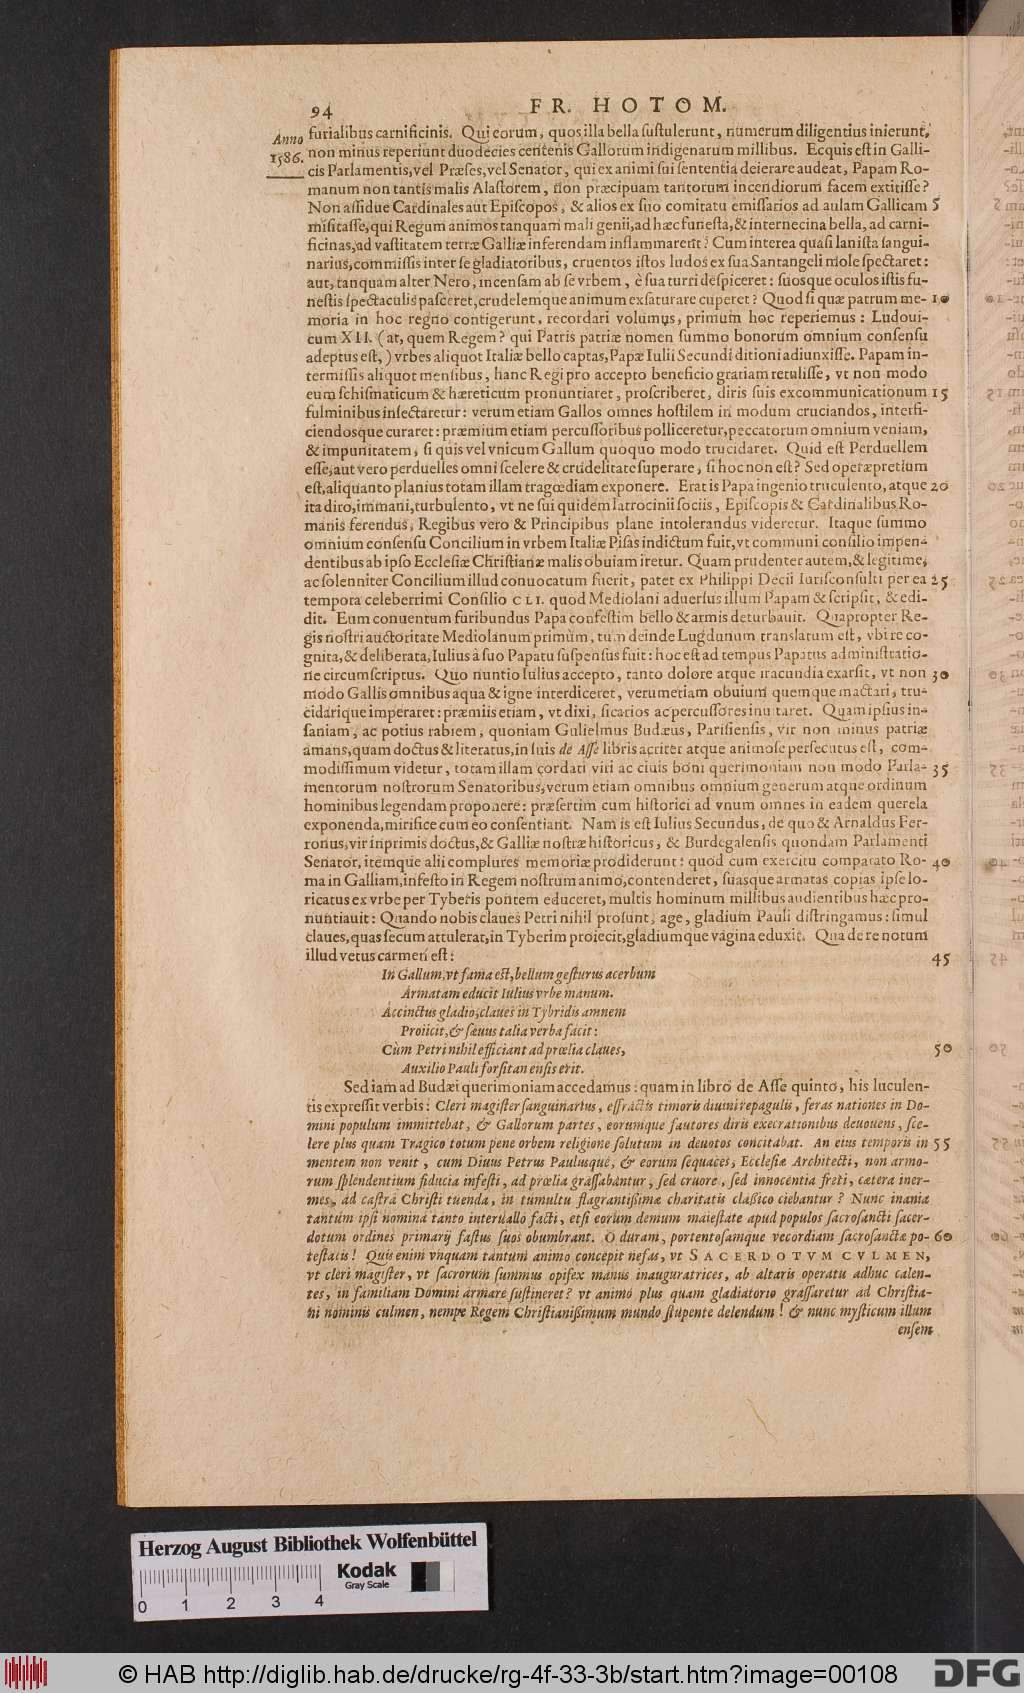 94 FR. HOTOM.
Anno 1586.
furialibus carnificinis. Qui eorum, quos illa bella ſuſtulerunt, numerum diligentius inierunt,
non minus reperiunt duodecies centenis Gallorum indigenarum millibus. Ecquis eſt in Galli-
cis Parlamentis, vel Præſes, vel Senator, qui ex animi ſui ſententia deierare audeat, Papam Ro-
manum non tantis malis Alaſtorem, non præcipuam tantorum incendiorum facem extitiſſe?
Non aſſidue Cardinales aut Epiſcopos, & alios ex ſuo comitatu emiſſarios ad aulam Gallicam 5
miſitaſſe, qui Regum animos tanquam mali genii, ad hæc funeſta, & internecina bella, ad carni-
ficinas, ad vaſtitatem terræ Galliæ inferendam inflammarent? Cum interea quaſi laniſta ſangui-
narius, commiſſis inter ſe gladiatoribus, cruentos iſtos ludos ex ſua Santangeli mole ſpectaret:
aut, tanquam alter Nero, incenſam ab ſe vrbem, è ſua turri deſpiceret: ſuosque oculos iſtis fu-
neſtis ſpectaculis paſceret, crudelemque animum exſaturare cuperet? Quod ſi quæ patrum me- 10
moria in hoc regno contigerunt, recordari volumus, primum hoc reperiemus: Ludoui-
cum XII. (at, quem Regem? qui Patris patriæ nomen ſummo bonorum omnium conſenſu
adeptus eſt,) vrbes aliquot Italiæ bello captas, Papæ Iulii Secundi ditioni adiunxiſſe. Papam in-
termiſſis aliquot menſibus, hanc Regi pro accepto beneficio gratiam retuliſſe, vt non modo
eum ſchiſmaticum & hæreticum pronuntiaret, proſcriberet, diris ſuis excommunicationum 15
fulminibus inſectaretur: verum etiam Gallos omnes hoſtilem in modum cruciandos, interfi-
ciendosque curaret: præmium etiam percuſſoribus polliceretur, peccatorum omnium veniam,
& impunitatem, ſi quis vel vnicum Gallum quoquo modo trucidaret. Quid eſt Perduellem
eſſe, aut vero perduelles omni ſcelere & crudelitate ſuperare, ſi hoc non eſt? Sed operæpretium
eſt, aliquanto planius totam illam tragœdiam exponere. Erat is Papa ingenio truculento, atque 20
ita diro, immani, turbulento, vt ne ſui quidem latrocinii ſociis, Epiſcopis & Cardinalibus Ro-
manis ferendus, Regibus vero & Principibus plane intolerandus videretur. Itaque ſummo
omnium conſenſu Concilium in vrbem Italiæ Piſas indictum fuit, vt communi conſilio impen-
dentibus ab ipſo Eccleſiæ Chriſtianæ malis obuiam iretur. Quam prudenter autem, & legitime,
ac ſolenniter Concilium illud conuocatum fuerit, patet ex Philippi Decii Iuriſconſulti per ea 25
tempora celeberrimi Conſilio CLI. quod Mediolani aduerſus illum Papam & ſcripſit, & edi-
dit. Eum conuentum furibundus Papa confeſtim bello & armis deturbauit. Quapropter Re-
gis noſtri auctoritate Mediolanum primùm, tum deinde Lugdunum translatum eſt, vbi re co-
gnita, & deliberata, Iulius à ſuo Papatu ſuſpenſus fuit: hoc eſt ad tempus Papatus adminiſtratio-
ne circumſcriptus. Quo nuntio Iulius accepto, tanto dolore atque iracundia exarſit, vt non 30
modo Gallis omnibus aqua & igne interdiceret, verumetiam obuium quemque mactari, tru-
cidarique imperaret: præmiis etiam, vt dixi, ſicarios ac percuſſores inuitaret. Quam ipſius in-
ſaniam, ac potius rabiem, quoniam Gulielmus Budæus, Pariſienſis, vir non minus patriæ
amans, quam doctus & literatus, in ſuis de Aſſe libris acriter atque animoſe perſecutus eſt, com-
modiſſimum videtur, totam illam cordati viri ac ciuis boni querimoniam non modo Parla- 35
mentorum noſtrorum Senatoribus, verum etiam omnibus omnium generum atque ordinum
hominibus legendam proponere: præſertim cum hiſtorici ad vnum omnes in eadem querela
exponenda, mirifice cum eo conſentiant. Nam is eſt Iulius Secundus, de quo & Arnaldus Fer-
ronus, vir inprimis doctus, & Galliæ noſtræ hiſtoricus, & Burdegalenſis quondam Parlamenti
Senator, itemque alii complures memoriæ prodiderunt: quod cum exercitu comparato Ro- 40
ma in Galliam, infeſto in Regem noſtrum animo, contenderet, ſuasque armatas copias ipſe lo-
ricatus ex vrbe per Tyberis pontem educeret, multis hominum millibus audientibus hæc pro-
nuntiauit: Quando nobis claues Petri nihil proſunt, age, gladium Pauli diſtringamus: ſimul
claues, quas ſecum attulerat, in Tyberim proiecit, gladiumque vagina eduxit. Qua de re notum
illud vetus carmen eſt: 45
In Gallum, vt fama eſt, bellum geſturus acerbum
Armatam educit Iulius vrbe manum.
Accinctus gladio, claues in Tybridis amnem
Proiicit, & ſæuus talia verba facit:
Cùm Petri nihil efficiant ad prœlia claues, 50
Auxilio Pauli forſitan enſis erit.
Sed iam ad Budæi querimoniam accedamus: quam in libro de Aſſe quinto, his luculen-
tis expreſſit verbis: Cleri magiſter ſanguinarius, effractis timoris diuini repagulis, feras nationes in Do-
mini populum immittebat, & Gallorum partes, eorumque fautores diris execrationibus deuouens, ſce-
lere plus quam Tragico totum pene orbem religione ſolutum in deuotos concitabat. An eius temporis in 55
mentem non venit, cum Diuus Petrus Paulusque, & eorum ſequaces, Eccleſiæ Architecti, non armo-
rum ſplendentium fiducia infeſti, ad prœlia graſſabantur, ſed cruore, ſed innocentia freti, cætera iner-
mes, ad caſtra Chriſti tuenda, in tumultu flagrantiſſimæ charitatis claſſico ciebantur? Nunc inania
tantùm ipſi nomina tanto interuallo facti, etſi eorum demum maieſtate apud populos ſacroſancti ſacer-
dotum ordines primarij faſtus ſuos obumbrant. O duram, portentoſamque vecordiam ſacroſanctæ po- 60
teſtatis! Quis enim vnquam tantum animo concepit nefas, vt SACERDOTVM CVLMEN,
vt cleri magiſter, vt ſacrorum ſummus opifex manus inauguratrices, ab altaris operatu adhuc calen-
tes, in familiam Domini armare ſuſtineret? vt animo plus quam gladiatorio graſſaretur ad Chriſtia-
ni nominis culmen, nempe Regem Chriſtianiſſimum mundo ſtupente delendum! & nunc myſticum illum
enſem
Herzog August Bibliothek Wolfenbüttel
Kodak
Gray Scale
0 1 2 3 4
© HAB http://diglib.hab.de/drucke/rg-4f-33-3b/start.htm?image=00108
DFG